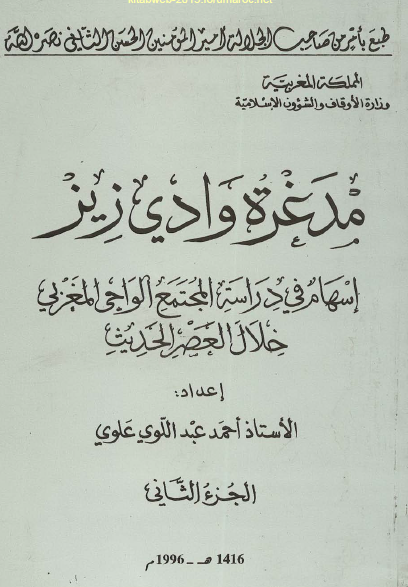 kitabweb-2013.forumaroc.net
طبع بأمر من صاحب الجلالة أمير المؤمنين الحسن الثاني نصره الله
المملكة المغربية
وزارة الأوقاف والشؤون الإسلامية
مدغرة وادي زيز
إسهام في دراسة المجتمع الواحي المغربي
خلال العصر الحديث
إعداد:
الأستاذ أحمد عبد اللوي علوي
الجزء الثاني
1416 هـ - 1996 م